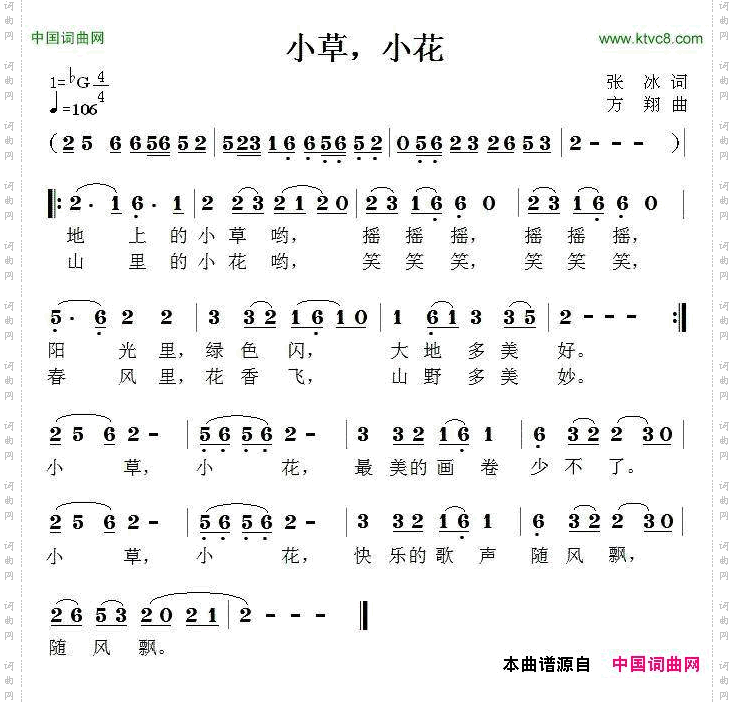 中国词曲网
小草，小花
www.ktvc8.com
1=♭G 4/4
♩=106
张 冰 词
方 翔 曲
（2 5 6 6 5 6 5 2 | 5 2 3 1 6 6 5 6 5 2 | 0 5 6 2 3 2 6 5 3 | 2 - - - ）|
‖: 2 · 1 6 · 1 | 2 2 3 2 1 2 0 | 2 3 1 6 6 0 | 2 3 1 6 6 0 |
地 上 的 小 草 哟， 摇 摇 摇， 摇 摇 摇，
山 里 的 小 花 哟， 笑 笑 笑， 笑 笑 笑，
5 · 6 2 2 | 3 3 2 1 6 1 0 | 1 6 1 3 3 5 | 2 - - - :‖
阳 光 里， 绿 色 闪， 大 地 多 美 好。
春 风 里， 花 香 飞， 山 野 多 美 妙。
2 5 6 2 - | 5 6 5 6 2 - | 3 3 2 1 6 1 | 6 3 2 2 3 0 |
小 草， 小 花， 最 美 的 画 卷 少 不 了。
2 5 6 2 - | 5 6 5 6 2 - | 3 3 2 1 6 1 | 6 3 2 2 3 0 |
小 草， 小 花， 快 乐 的 歌 声 随 风 飘，
2 6 5 3 2 0 2 1 | 2 - - - ‖
随 风 飘。
本曲谱源自 中国词曲网
词曲网
词曲网
词曲网
词曲网
词曲网
词曲网
词曲网
词曲网
词曲网
词曲网
词曲网
词曲网